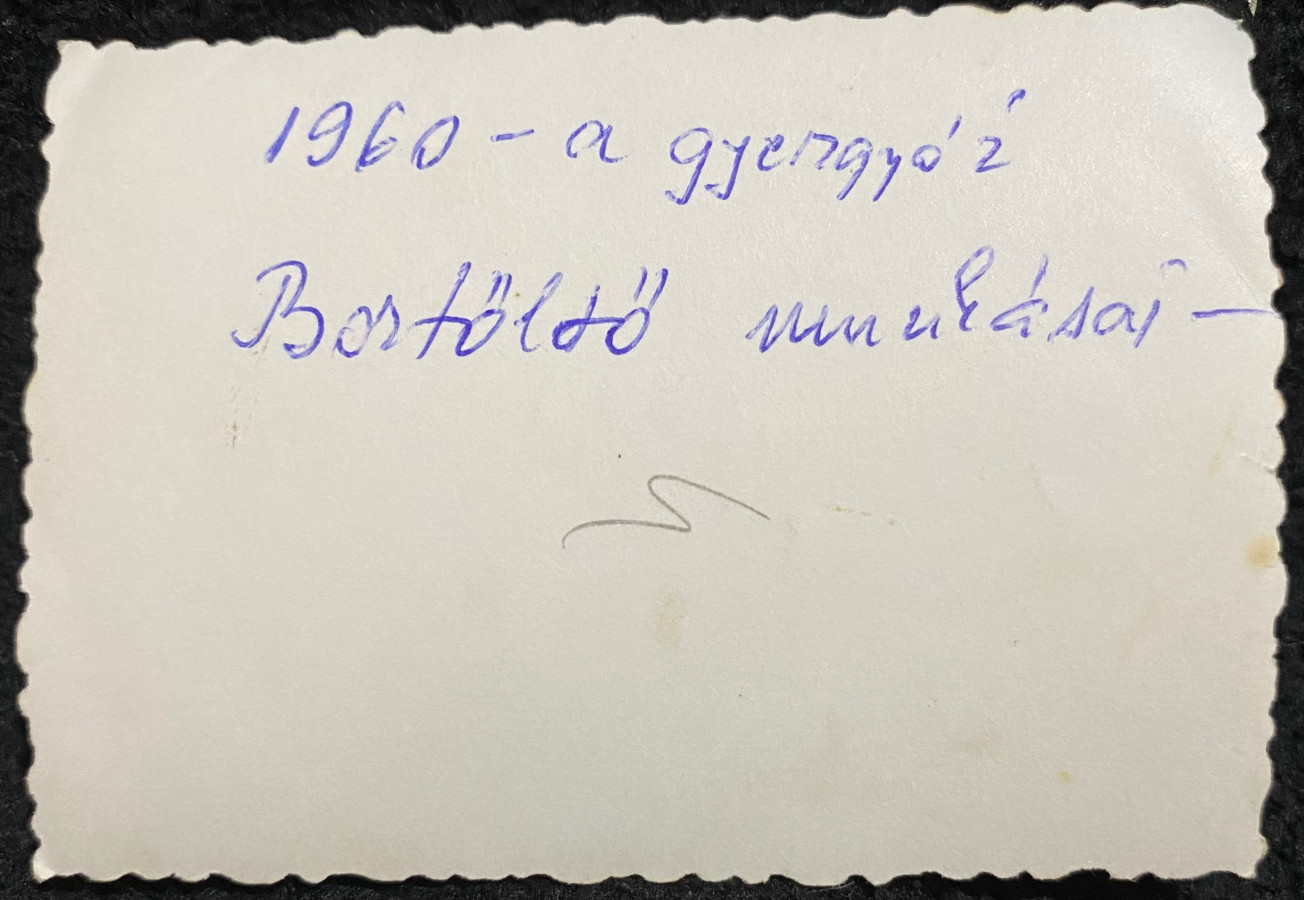 1960 - a gyergyói
Bortöltő munkásai -